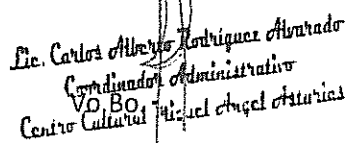 Lic. Carlos Alberto Rodríguez Alvarado
Coordinador Administrativo
Vo. Bo.
Centro Cultural Miguel Angel Asturias